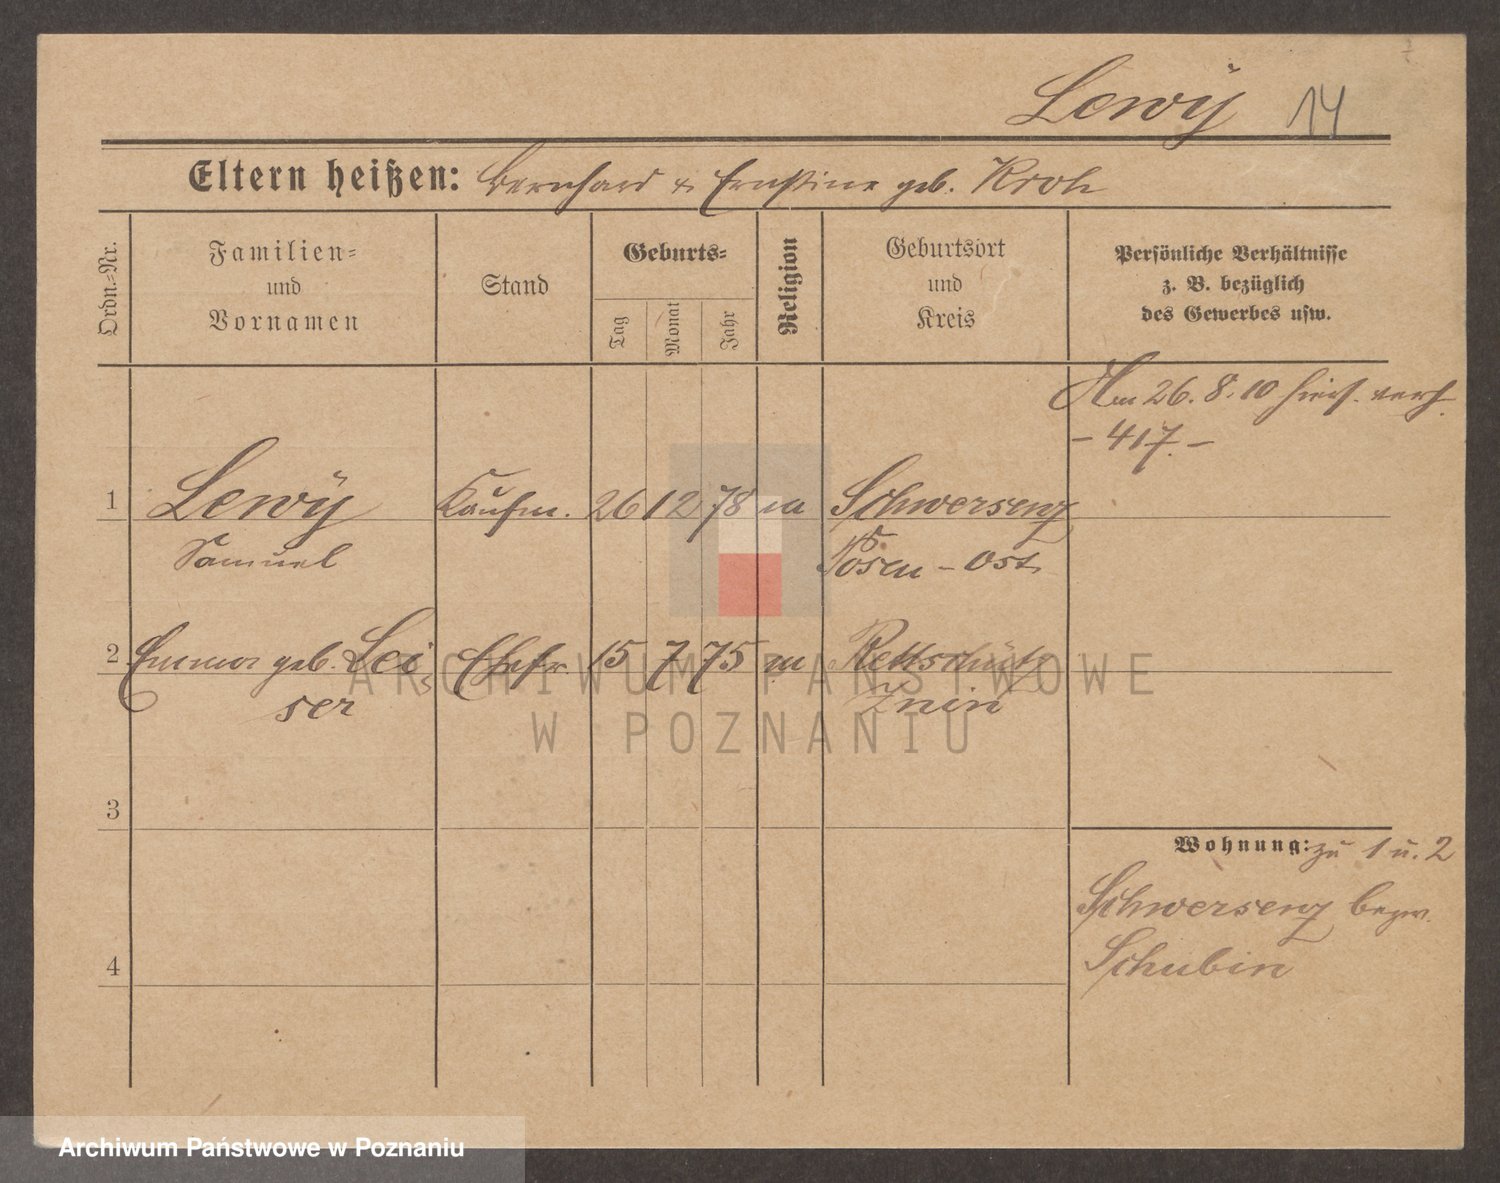 Lewÿ 14
Eltern heißen: Bernhard & Ernstine geb. Kroh
Ordn.-Nr.
Familien-
und
Vornamen
Stand
Geburts-
Tag
Monat
Jahr
Religion
Geburtsort
und
Kreis
Persönliche Verhältnisse
z. B. bezüglich
des Gewerbes usw.
Am 26.8.10 hies. verh.
- 417. -
1 Lewÿ Kaufm. 26 12 78 m Schwersenz
Samuel Posen - Ost
2 Emma geb. Lei- Ehefr. 15 7 75 m Rettschütz
ser Znin
3
Wohnung: zu 1 u. 2
Schwersenz bezw.
4 Schubin
ARCHIWUM PAŃSTWOWE
W POZNANIU
Archiwum Państwowe w Poznaniu